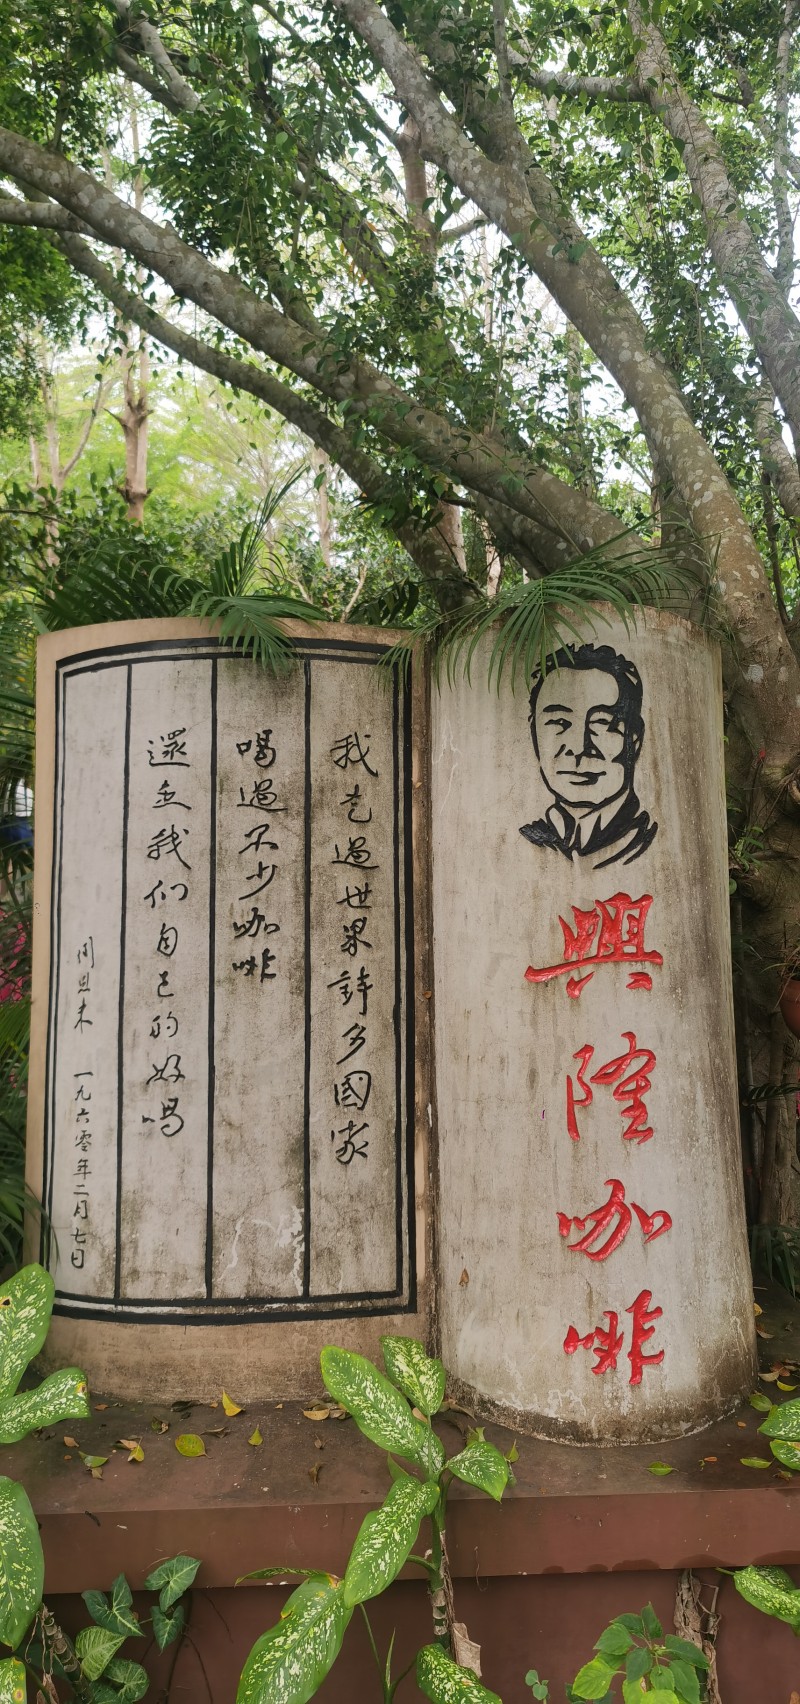 興隆咖啡
我走過世界許多國家
喝過不少咖啡
還是我们自己的好喝
周恩来 一九六零年二月七日